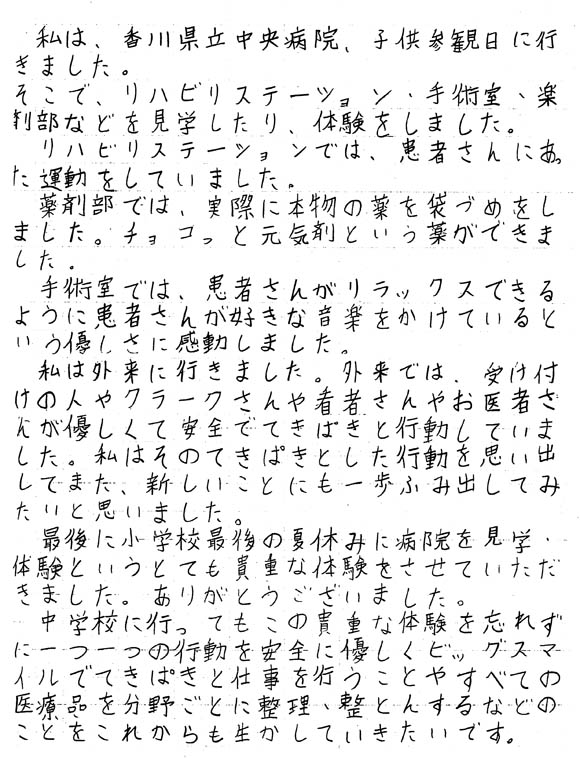 私は、香川県立中央病院、子供参観日に行
きました。
そこで、リハビリステーション・手術室・楽
剤部などを見学したり、体験をしました。
リハビリステーションでは、患者さんにあ
った運動をしていました。
薬剤部では、実際に本物の薬を袋づめをし
ました。チョコっと元気剤という薬ができま
した。
手術室では、患者さんがリラックスできる
ように患者さんが好きな音楽をかけていると
いう優しさに感動しました。
私は外来に行きました。外来では、受け付
けの人やクラークさんや看者さんやお医者さ
んが優しくて安全でてきぱきと行動していま
した。私はそのてきぱきとした行動を思い出
してまた、新しいことにも一歩ふみ出してみ
たいと思いました。
最後に小学校最後の夏休みに病院を見学・
体験というとても貴重な体験をさせていただ
きました。ありがとうございました。
中学校に行ってもこの貴重な体験を忘れず
に一つ一つの行動を安全に優しくビッグスマ
イルでてきぱきと仕事を行うことやすべての
医療品を分野ごとに整理、整とんするなどの
ことをこれからも生かしていきたいです。